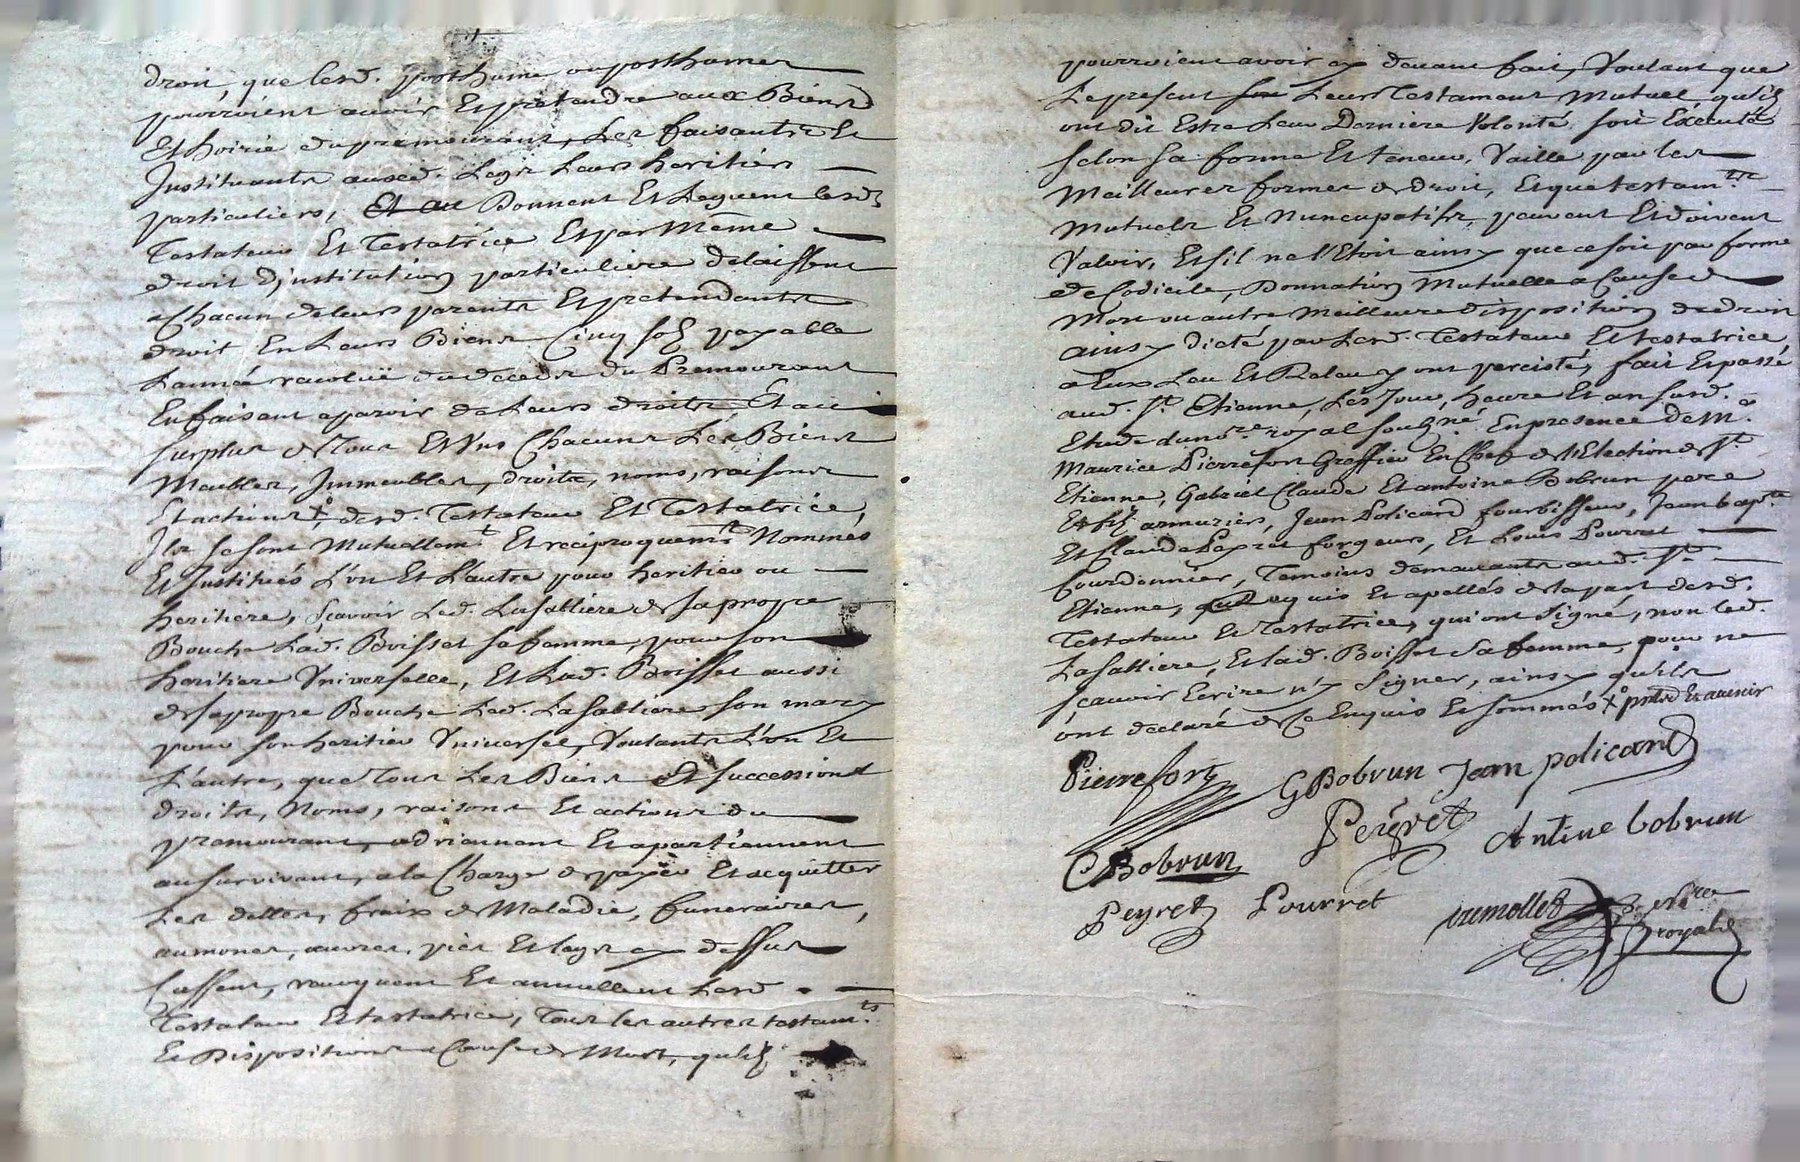 droit, que lesd. posthume ou posthumes
pourroient avoir Et pretendre aux Biens
Et hoirie du premourant, Les faisants Et
Instituants auxd. Legs Leurs heritiers
particuliers, Et au Donnent Et Leguent lesds
Testateur Et Testatrice Et par Même
droit d'institution particuliere delaissent
a Chacun de leurs parents Et pretendants
droit En Leurs Biens Cinq sols payable
Lannée revolüe du deceds du Premourant
En faisant aparoir de Leurs droits, Et au
surplus de tous Et Uns Chacuns Les Biens
Meubles, Immeubles, droits, noms, raisons
Et actions, desd. Testateur Et Testatrice,
Ils se sont Mutuellemt Et reciproquemt Nommés
Et Institués L'un Et L'autre pour heritier ou
heritiere, sçavoir Led. Lasabliere de sa propre
Bouche Lad. Boisset sa femme, pour son
heritiere Universelle, Et Lad. Boisset aussi
de sa propre Bouche Led. Lasabliere son mary
pour son heritier Universel, Voulants L'un Et
L'autre, que tous Les Biens Et successions
droits, Noms, raisons Et actions du
premourant, adviennent Et apartiennent
au survivant, a la Charge de payer Et acquitter
Les dettes, fraix de Maladie, funeraires,
aumones, œuvres pies Et legs cy dessus
Cassent, revoquent Et annullent Lesd.
Testateur Et testatrice, Tous les autres testamts
Et Dispositions a Cause de Mort, qu'ils
pourroient avoir cy devant fait, Voulant que
Le present Leur Testament Mutuel qu'ils
ont dit Estre Leur Derniere Volonté soit Executé
selon sa forme Et teneur, Vaille par les
Meilleures formes de droit, Et que testamts
Mutuels Et Nuncupatifs, peuvent Et doivent
Valoir, Et s'il ne l'Etoit ainsy que ce soit par forme
de Codicile, Donnation Mutuelle a Cause de
Mort ou autre Meilleure disposition de droit
ainsy dicté par Lesd. Testateur Et testatrice
a Eux Leu Et Releu y ont percisté, fait Et passé
aud. St Etienne, Les Jour, heure Et an susd.
Etude du nore royal soubsné En presence de Mr
Maurice Pierrefort Greffier En Chef de l'Election de St
Etienne, Gabriel Claude Et antoine Bobrun pere
Et fils armuriers, Jean Policard fourbisseur, Jean bapte
Et Claude Peyret forgeurs, Et Louis Pourret
Courdonnier, Temoins demeurants aud. St
Etienne, requis Et apellés de la part desd.
Testateur Et Testatrice, qui ont signé, non led.
Lasabliere, Et lad. Boisset sa femme, pour ne
sçavoir Ecrire n'y signer, ainsy qu'ils
ont declaré de ce Enquis Et sommés presd Et avenir
Pierrefort GBobrun Jean policard
Peyret Antine bobrun
C Bobrun
Peyret Pourret tremollet
royal